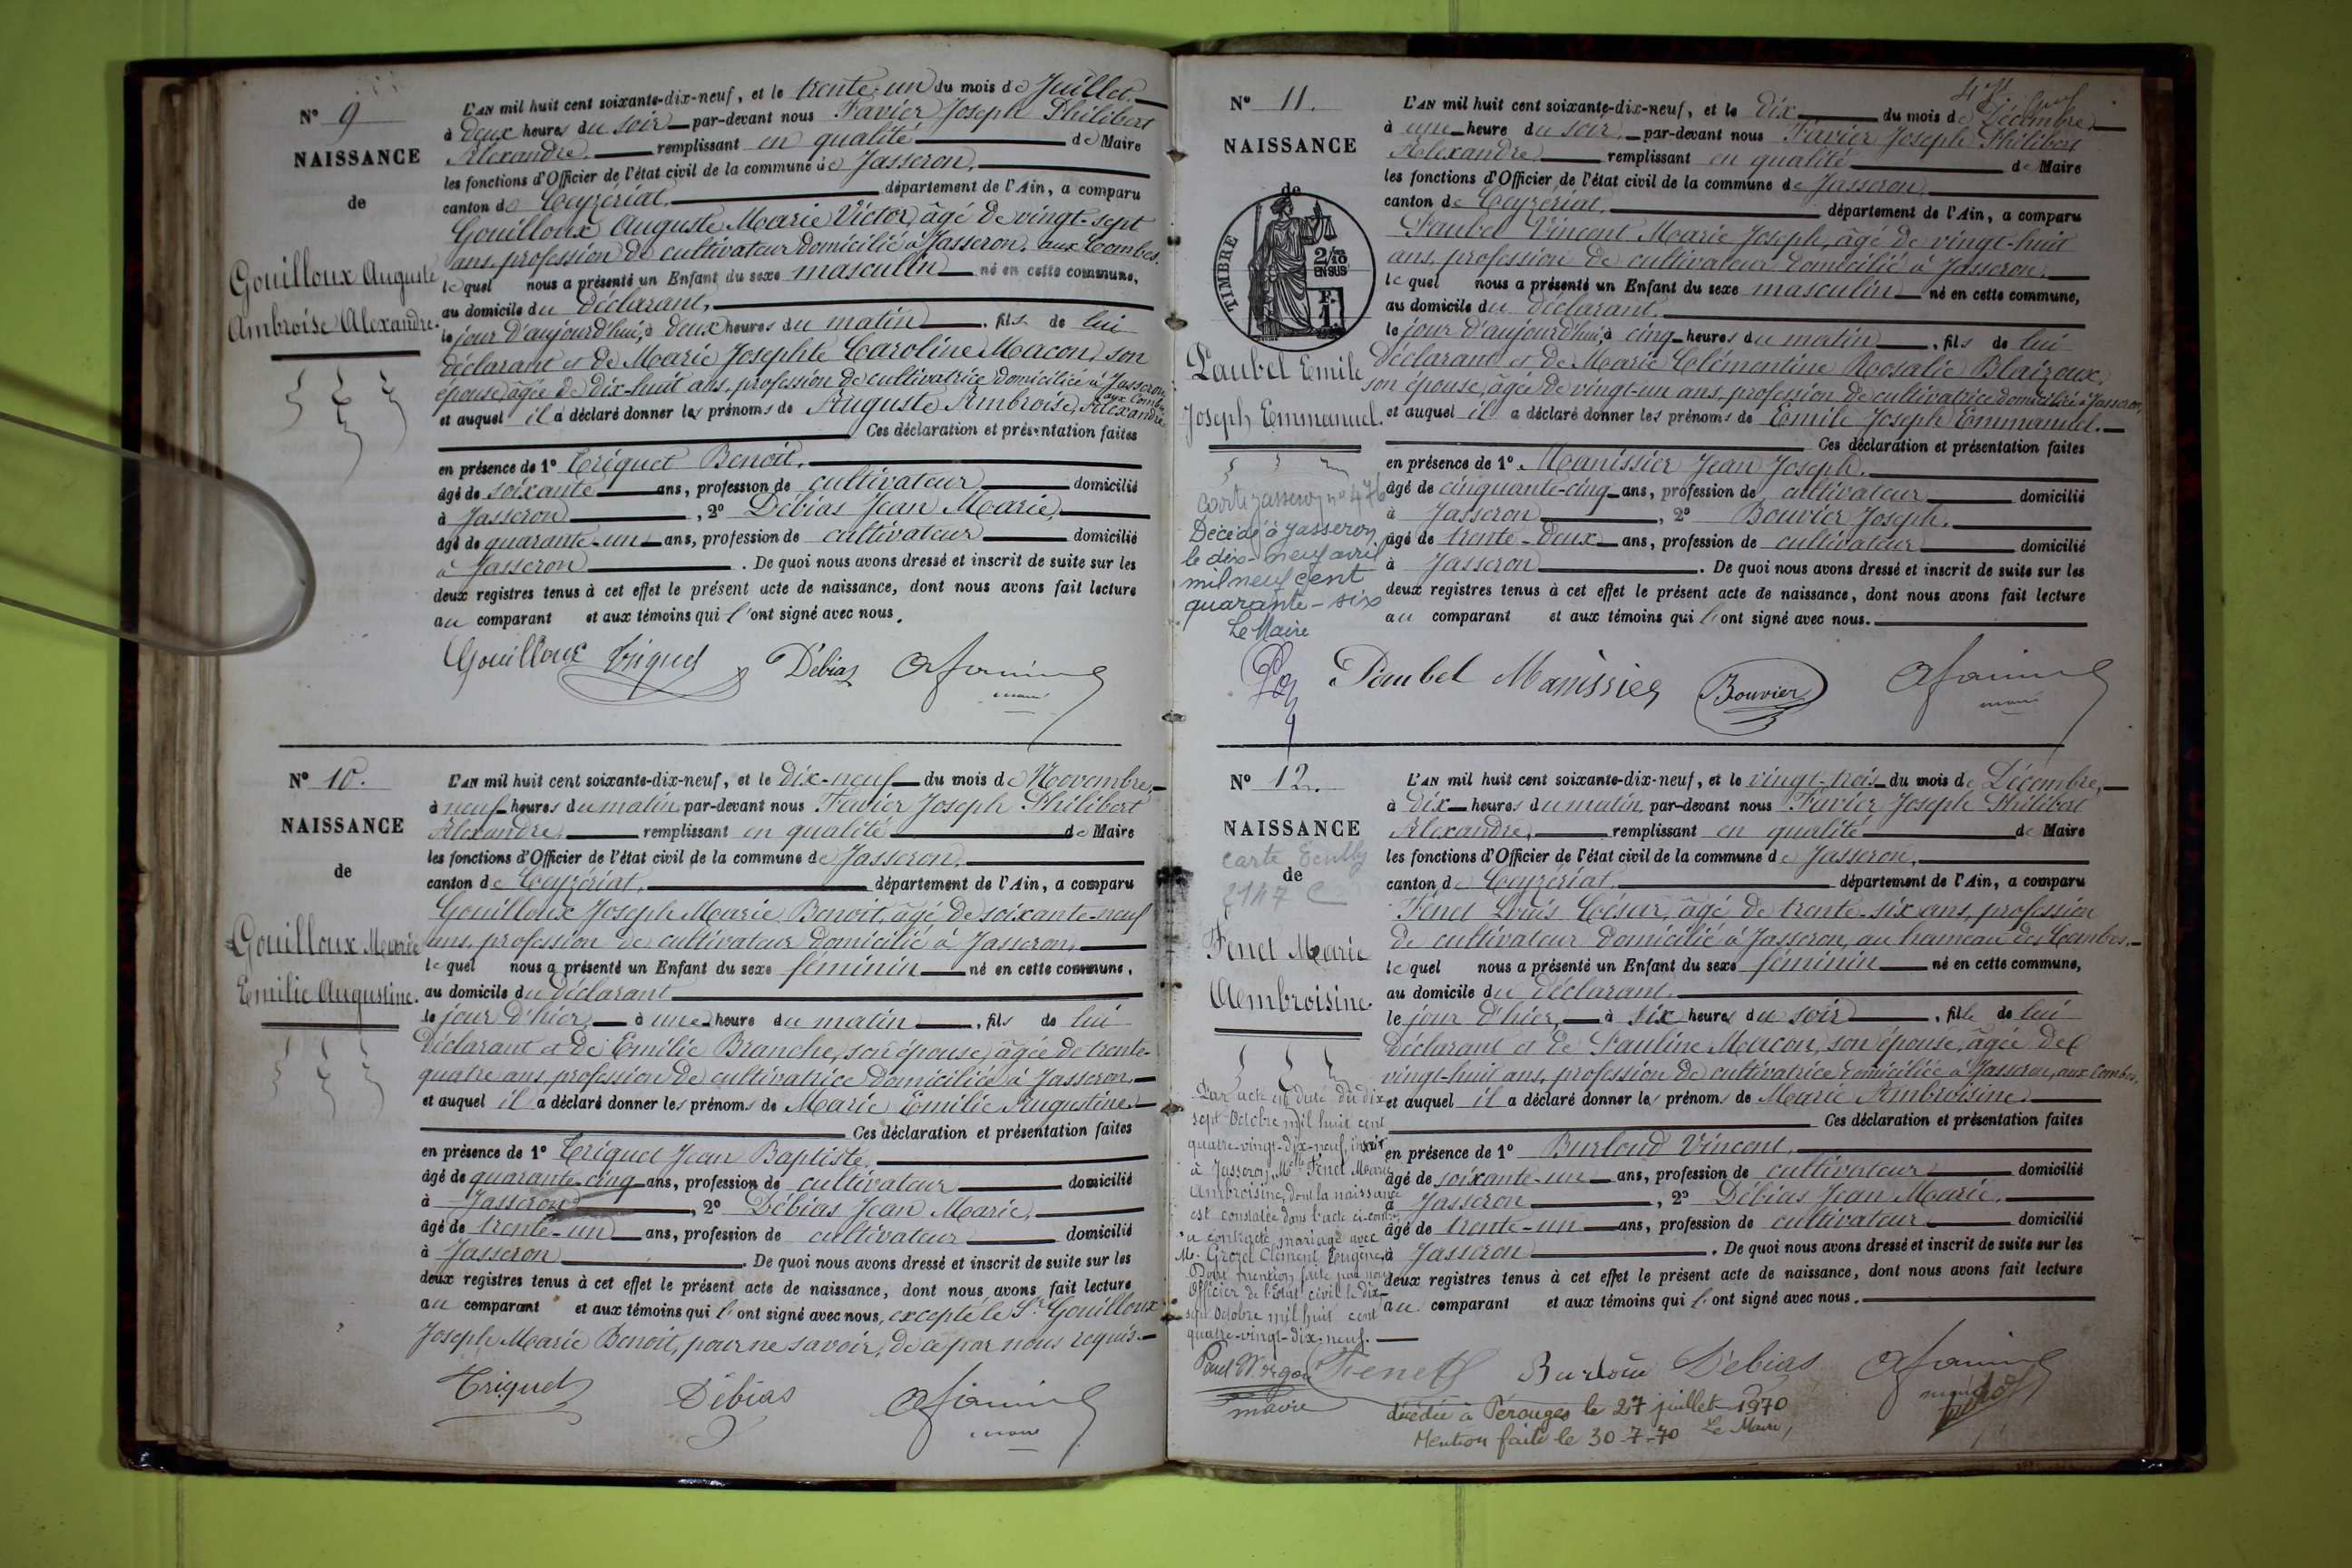 N° 9
NAISSANCE
de
Gouilloux Auguste
Ambroise Alexandre.
L'AN mil huit cent soixante-dix-neuf, et le trente-un du mois de Juillet,
à deux heures du soir par-devant nous Favier Joseph Philibert
Alexandre, remplissant en qualité de Maire
les fonctions d'Officier de l'état civil de la commune de Jasseron,
canton de Ceyzériat, département de l'Ain, a comparu
Gouilloux Auguste Marie Victor, âgé de vingt-sept
ans, profession de cultivateur domicilié à Jasseron, aux Combes.
lequel nous a présenté un Enfant du sexe masculin né en cette commune,
au domicile du déclarant,
le jour d'aujourd'hui, à deux heures du matin, fils de lui
déclarant et de Marie Josephte Caroline Macon, son
épouse, âgée de dix-huit ans, profession de cultivatrice domiciliée à Jasseron,
aux Combes
et auquel il a déclaré donner les prénoms de Auguste Ambroise, Alexandre
Ces déclaration et présentation faites
en présence de 1° Triquet Benoit,
âgé de soixante ans, profession de cultivateur domicilié
à Jasseron, 2° Débias Jean Marie,
âgé de quarante-un ans, profession de cultivateur domicilié
à Jasseron. De quoi nous avons dressé et inscrit de suite sur les
deux registres tenus à cet effet le présent acte de naissance, dont nous avons fait lecture
au comparant et aux témoins qui l'ont signé avec nous.
Gouilloux Triquet Débias
maire
N° 10.
NAISSANCE
de
Gouilloux Marie
Emilie Augustine.
L'AN mil huit cent soixante-dix-neuf, et le dix-neuf du mois de Novembre,
à neuf heures du matin, par-devant nous Favier Joseph Philibert
Alexandre, remplissant en qualité de Maire
les fonctions d'Officier de l'état civil de la commune de Jasseron,
canton de Ceyzériat, département de l'Ain, a comparu
Gouilloux Joseph Marie Benoit, âgé de soixante-neuf
ans, profession de cultivateur domicilié à Jasseron,
lequel nous a présenté un Enfant du sexe féminin né en cette commune,
au domicile du déclarant
le jour d'hier, à une heure du matin, fils de lui
déclarant et de Emilie Branche, son épouse, âgée de trente-
quatre ans, profession de cultivatrice domiciliée à Jasseron,
et auquel il a déclaré donner les prénoms de Marie Emilie Augustine
Ces déclaration et présentation faites
en présence de 1° Triquet Jean Baptiste,
âgé de quarante-cinq ans, profession de cultivateur domicilié
à Jasseron, 2° Débias Jean Marie,
âgé de trente-un ans, profession de cultivateur domicilié
à Jasseron. De quoi nous avons dressé et inscrit de suite sur les
deux registres tenus à cet effet le présent acte de naissance, dont nous avons fait lecture
au comparant et aux témoins qui l'ont signé avec nous, excepté le Sr Gouilloux
Joseph Marie Benoit, pour ne savoir, de ce par nous requis.
Triquet Débias
maire
N° 11.
NAISSANCE
de
TIMBRE
2/10
EN SUS
F.
1.
Paubel Emile
Joseph Emmanuel.
carte Jasseron n° 476
Décédé à Jasseron
le dix-neuf avril
mil neuf cent
quarante-six
Le Maire
L'AN mil huit cent soixante-dix-neuf, et le dix du mois de Décembre,
à une heure du soir, par-devant nous Favier Joseph Philibert
Alexandre remplissant en qualité de Maire
les fonctions d'Officier de l'état civil de la commune de Jasseron,
canton de Ceyzériat, département de l'Ain, a comparu
Paubel Vincent Marie Joseph, âgé de vingt-huit
ans, profession de cultivateur domicilié à Jasseron,
lequel nous a présenté un Enfant du sexe masculin né en cette commune,
au domicile du déclarant,
le jour d'aujourd'hui, à cinq heures du matin, fils de lui
déclarant et de Marie Clémentine Rosalie Blaizoux,
son épouse, âgée de vingt-un ans, profession de cultivatrice domiciliée à Jasseron,
et auquel il a déclaré donner les prénoms de Emile Joseph Emmanuel.
Ces déclaration et présentation faites
en présence de 1° Manissier Jean Joseph,
âgé de cinquante-cinq ans, profession de cultivateur domicilié
à Jasseron, 2° Bouvier Joseph,
âgé de trente-deux ans, profession de cultivateur domicilié
à Jasseron. De quoi nous avons dressé et inscrit de suite sur les
deux registres tenus à cet effet le présent acte de naissance, dont nous avons fait lecture
au comparant et aux témoins qui l'ont signé avec nous.
Paubel Manissier Bouvier
maire
N° 12.
NAISSANCE
carte
de
2147 C
Fenet Marie
Ambroisine.
Par acte en date du dix-
sept Octobre mil huit cent
quatre-vingt-dix-neuf, inscrit
à Jasseron, Melle Fenet Marie
Ambroisine, dont la naissance
est constatée dans l'acte ci-contre
a contracté mariage avec
M. Grozel Clément Eugène,
Dont mention faite par nous
Officier de l'Etat civil le dix-
sept Octobre mil huit cent
quatre-vingt-dix-neuf.
maire
L'AN mil huit cent soixante-dix-neuf, et le vingt-trois du mois de Décembre,
à dix heures du matin, par-devant nous Favier Joseph Philibert
Alexandre, remplissant en qualité de Maire
les fonctions d'Officier de l'état civil de la commune de Jasseron,
canton de Ceyzériat, département de l'Ain, a comparu
Fenet Louis César, âgé de trente-six ans, profession
de cultivateur domicilié à Jasseron, au hameau des Combes,
lequel nous a présenté un Enfant du sexe féminin né en cette commune,
au domicile du déclarant,
le jour d'hier, à six heures du soir, fille de lui
déclarant et de Pauline Macon, son épouse, âgée de
vingt-huit ans, profession de cultivatrice domiciliée à Jasseron, aux Combes,
et auquel il a déclaré donner les prénoms de Marie Ambroisine
Ces déclaration et présentation faites
en présence de 1° Burloud Vincent,
âgé de soixante-un ans, profession de cultivateur domicilié
à Jasseron, 2° Débias Jean Marie,
âgé de trente-un ans, profession de cultivateur domicilié
à Jasseron. De quoi nous avons dressé et inscrit de suite sur les
deux registres tenus à cet effet le présent acte de naissance, dont nous avons fait lecture
au comparant et aux témoins qui l'ont signé avec nous.
Fenet Burloud Débias
décédée à Pérouges le 27 juillet 1970
Mention faite le 30-7-70 Le Maire,